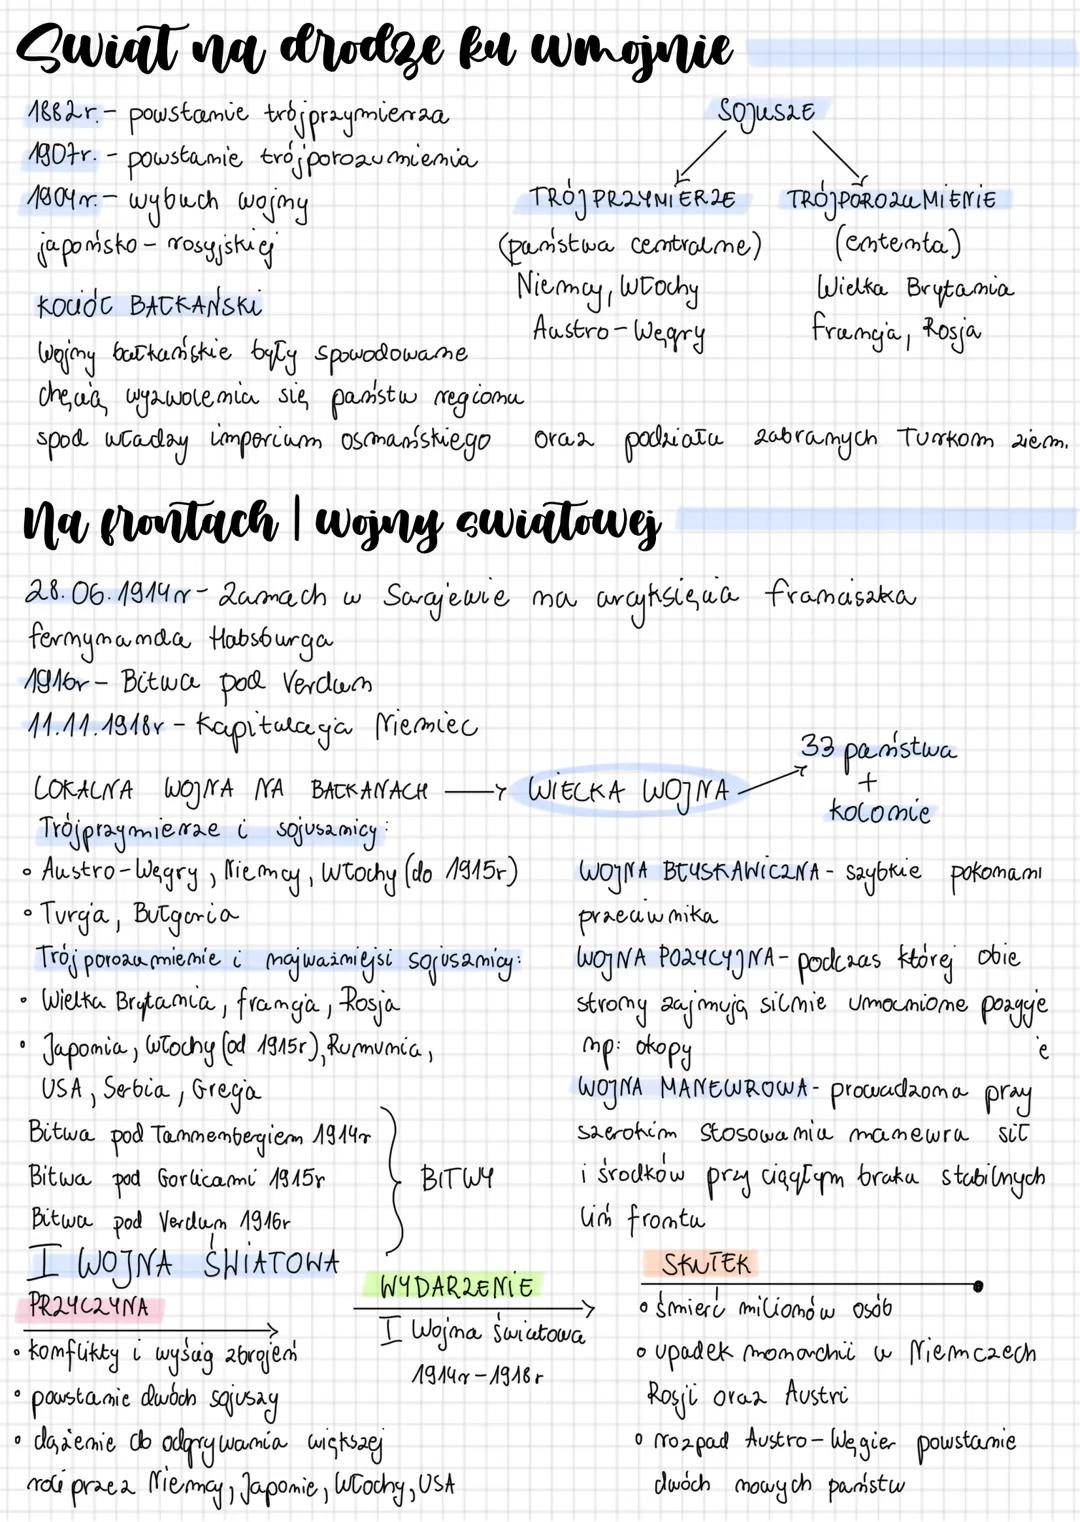 Swiat na drodze ku wmojnie
1882r. - powstanie trójprzymierza
1907r. - powstanie trójporozumienia
1904r. - wybuch wojny
japońsko - rosyjskiej
SOJUSZE
TRÓJPRZYMIERZE
(państwa centralne)
Niemcy, Włochy
Austro-Węgry
TRÓJPOROZUMIENIE
(ententa)
Wielka Brytania
francja, Rosja
KOCIOŁ BAŁKAŃSKI
Wojny bałkańskie były spowodowane
chęcią wyzwolenia się państw regionu
spod władzy imperium osmańskiego oraz podziału zabranych Turkom ziem.
Na frontach I wojny swiatowej
28.06.1914r - Zamach w Sarajewie na arcyksięcia franciszka
fernynanda Habsburga
1916r - Bitwa pod Verdun
11.11.1918r - Kapitulacja Niemiec
LOKALNA WOJNA NA BAŁKANACH → WIELKA WOJNA
33 państwa
+
kolonie
Trójprzymierze i sojusznicy:
• Austro-Węgry, Niemcy, Włochy (do 1915r)
• Turcja, Bułgaria
Trójporozumienie i najważniejsi sojusznicy:
• Wielka Brytania, francja, Rosja
• Japonia, Włochy (od 1915r), Rumunia,
USA, Serbia, Grecja
Bitwa pod Tannenbergiem 1914r
Bitwa pod Gorlicami 1915r
Bitwa pod Verdun 1916r
BITWY
WOJNA BŁYSKAWICZNA - szybkie pokonani
e
przeciwnika
WOJNA POZYCYJNA - podczas której obie
strony zajmują silnie umocnione pozycje
np: okopy
WOJNA MANEWROWA - prowadzona przy
szerokim stosowaniu manewru sił
i środków przy ciągłym braku stabilnych
lini frontu
I WOJNA ŚWIATOWA
PRZYCZYNA
• konflikty i wyścig zbrojeń
• powstanie dwóch sojuszy
• dążenie do odgrywania większej
roli przez Niemcy, Japonie, Włochy, USA
WYDARZENIE
I Wojna światowa
1914r - 1918r
SKUTEK
• śmierć milionów osób
• upadek monarchii w Niemczech
Rosji oraz Austri
• rozpad Austro-Węgier powstanie
dwóch nowych państw